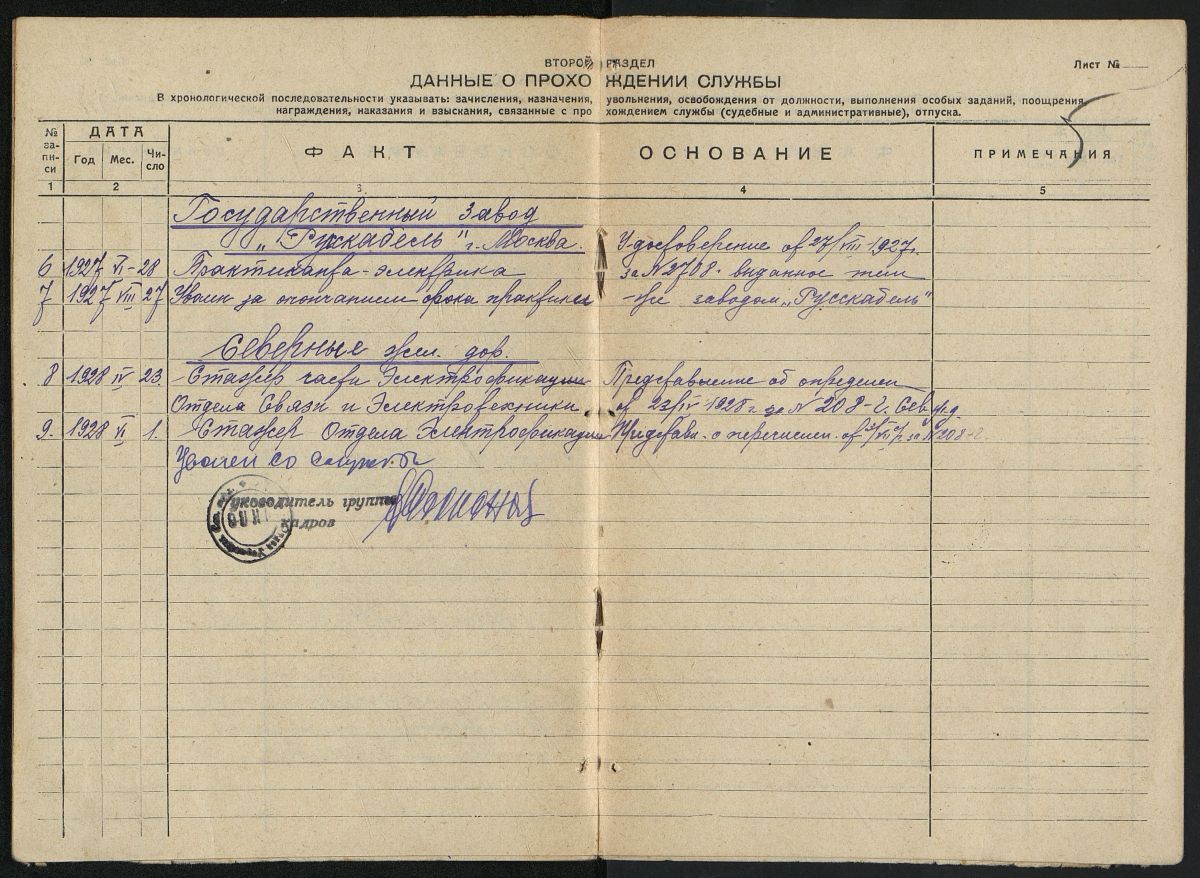 ВТОРОЙ РАЗДЕЛ
Лист №
ДАННЫЕ О ПРОХОЖДЕНИИ СЛУЖБЫ
В хронологической последовательности указывать: зачисления, назначения, увольнения, освобождения от должности, выполнения особых заданий, поощрения,
награждения, наказания и взыскания, связанные с прохождением службы (судебные и административные), отпуска.
5
№ за-пи-си ДАТА ФАКТ ОСНОВАНИЕ ПРИМЕЧАНИЯ
Год Мес. Чи-сло
1 2 3 4 5
Государственный завод
„Рускабель" г. Москва. Удостоверение от 27/VIII-1927г.
6 1927 VI-28 Практиканта-электрика за № 2708. выданное тем
7 1927 VIII 27 Уволен за окончанием срока практики -же заводом „Русскабель"
Северные жел. дор.
8 1928 IV 23. Стажер части Электрофикации Представление об определен
Отдела Связи и Электротехники от 23/IV 1928 г за № 208-г. Сев ж.д.
9. 1928 VI 1. Стажер Отдела Электрофикации Представ. о перечислен. от за № 208-г.
Уволен со службы
Руководитель группы
кадров